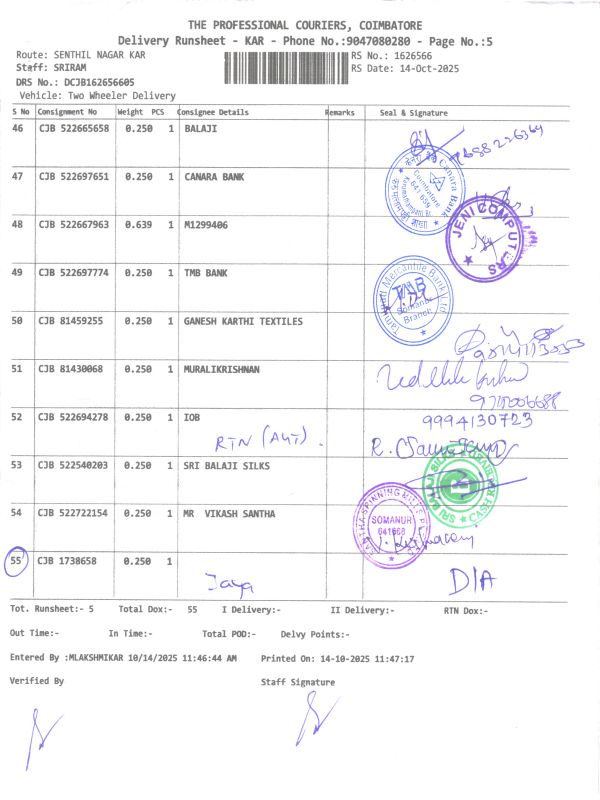 THE PROFESSIONAL COURIERS, COIMBATORE
Delivery Runsheet - KAR - Phone No.:9047080280 - Page No.:5
Route: SENTHIL NAGAR KAR
RS No.: 1626566
Staff: SRIRAM
RS Date: 14-Oct-2025
DRS No.: DCJB162656605
Vehicle: Two Wheeler Delivery
S No Consignment No Weight PCS Consignee Details Remarks Seal & Signature
46 CJB 522665658 0.250 1 BALAJI
47 CJB 522697651 0.250 1 CANARA BANK
Canara Bank
Coimbatore
48 CJB 522667963 0.639 1 M1299406
JENI COMPUTERS
49 CJB 522697774 0.250 1 TMB BANK
Tamilnad Mercantile Bank Ltd
TMB
Somanur
Branch
50 CJB 81459255 0.250 1 GANESH KARTHI TEXTILES
51 CJB 81430068 0.250 1 MURALIKRISHNAN
52 CJB 522694278 0.250 1 IOB 9994130723
RTN
53 CJB 522540203 0.250 1 SRI BALAJI SILKS
SRI BALAJI SILKS
54 CJB 522722154 0.250 1 MR VIKASH SANTHA
SOMANUR
641668
55 CJB 1738658 0.250 1
Jaya D/A
Tot. Runsheet:- 5 Total Dox:- 55 I Delivery:- II Delivery:- RTN Dox:-
Out Time:- In Time:- Total POD:- Delvy Points:-
Entered By :MLAKSHMIKAR 10/14/2025 11:46:44 AM Printed On: 14-10-2025 11:47:17
Verified By Staff Signature